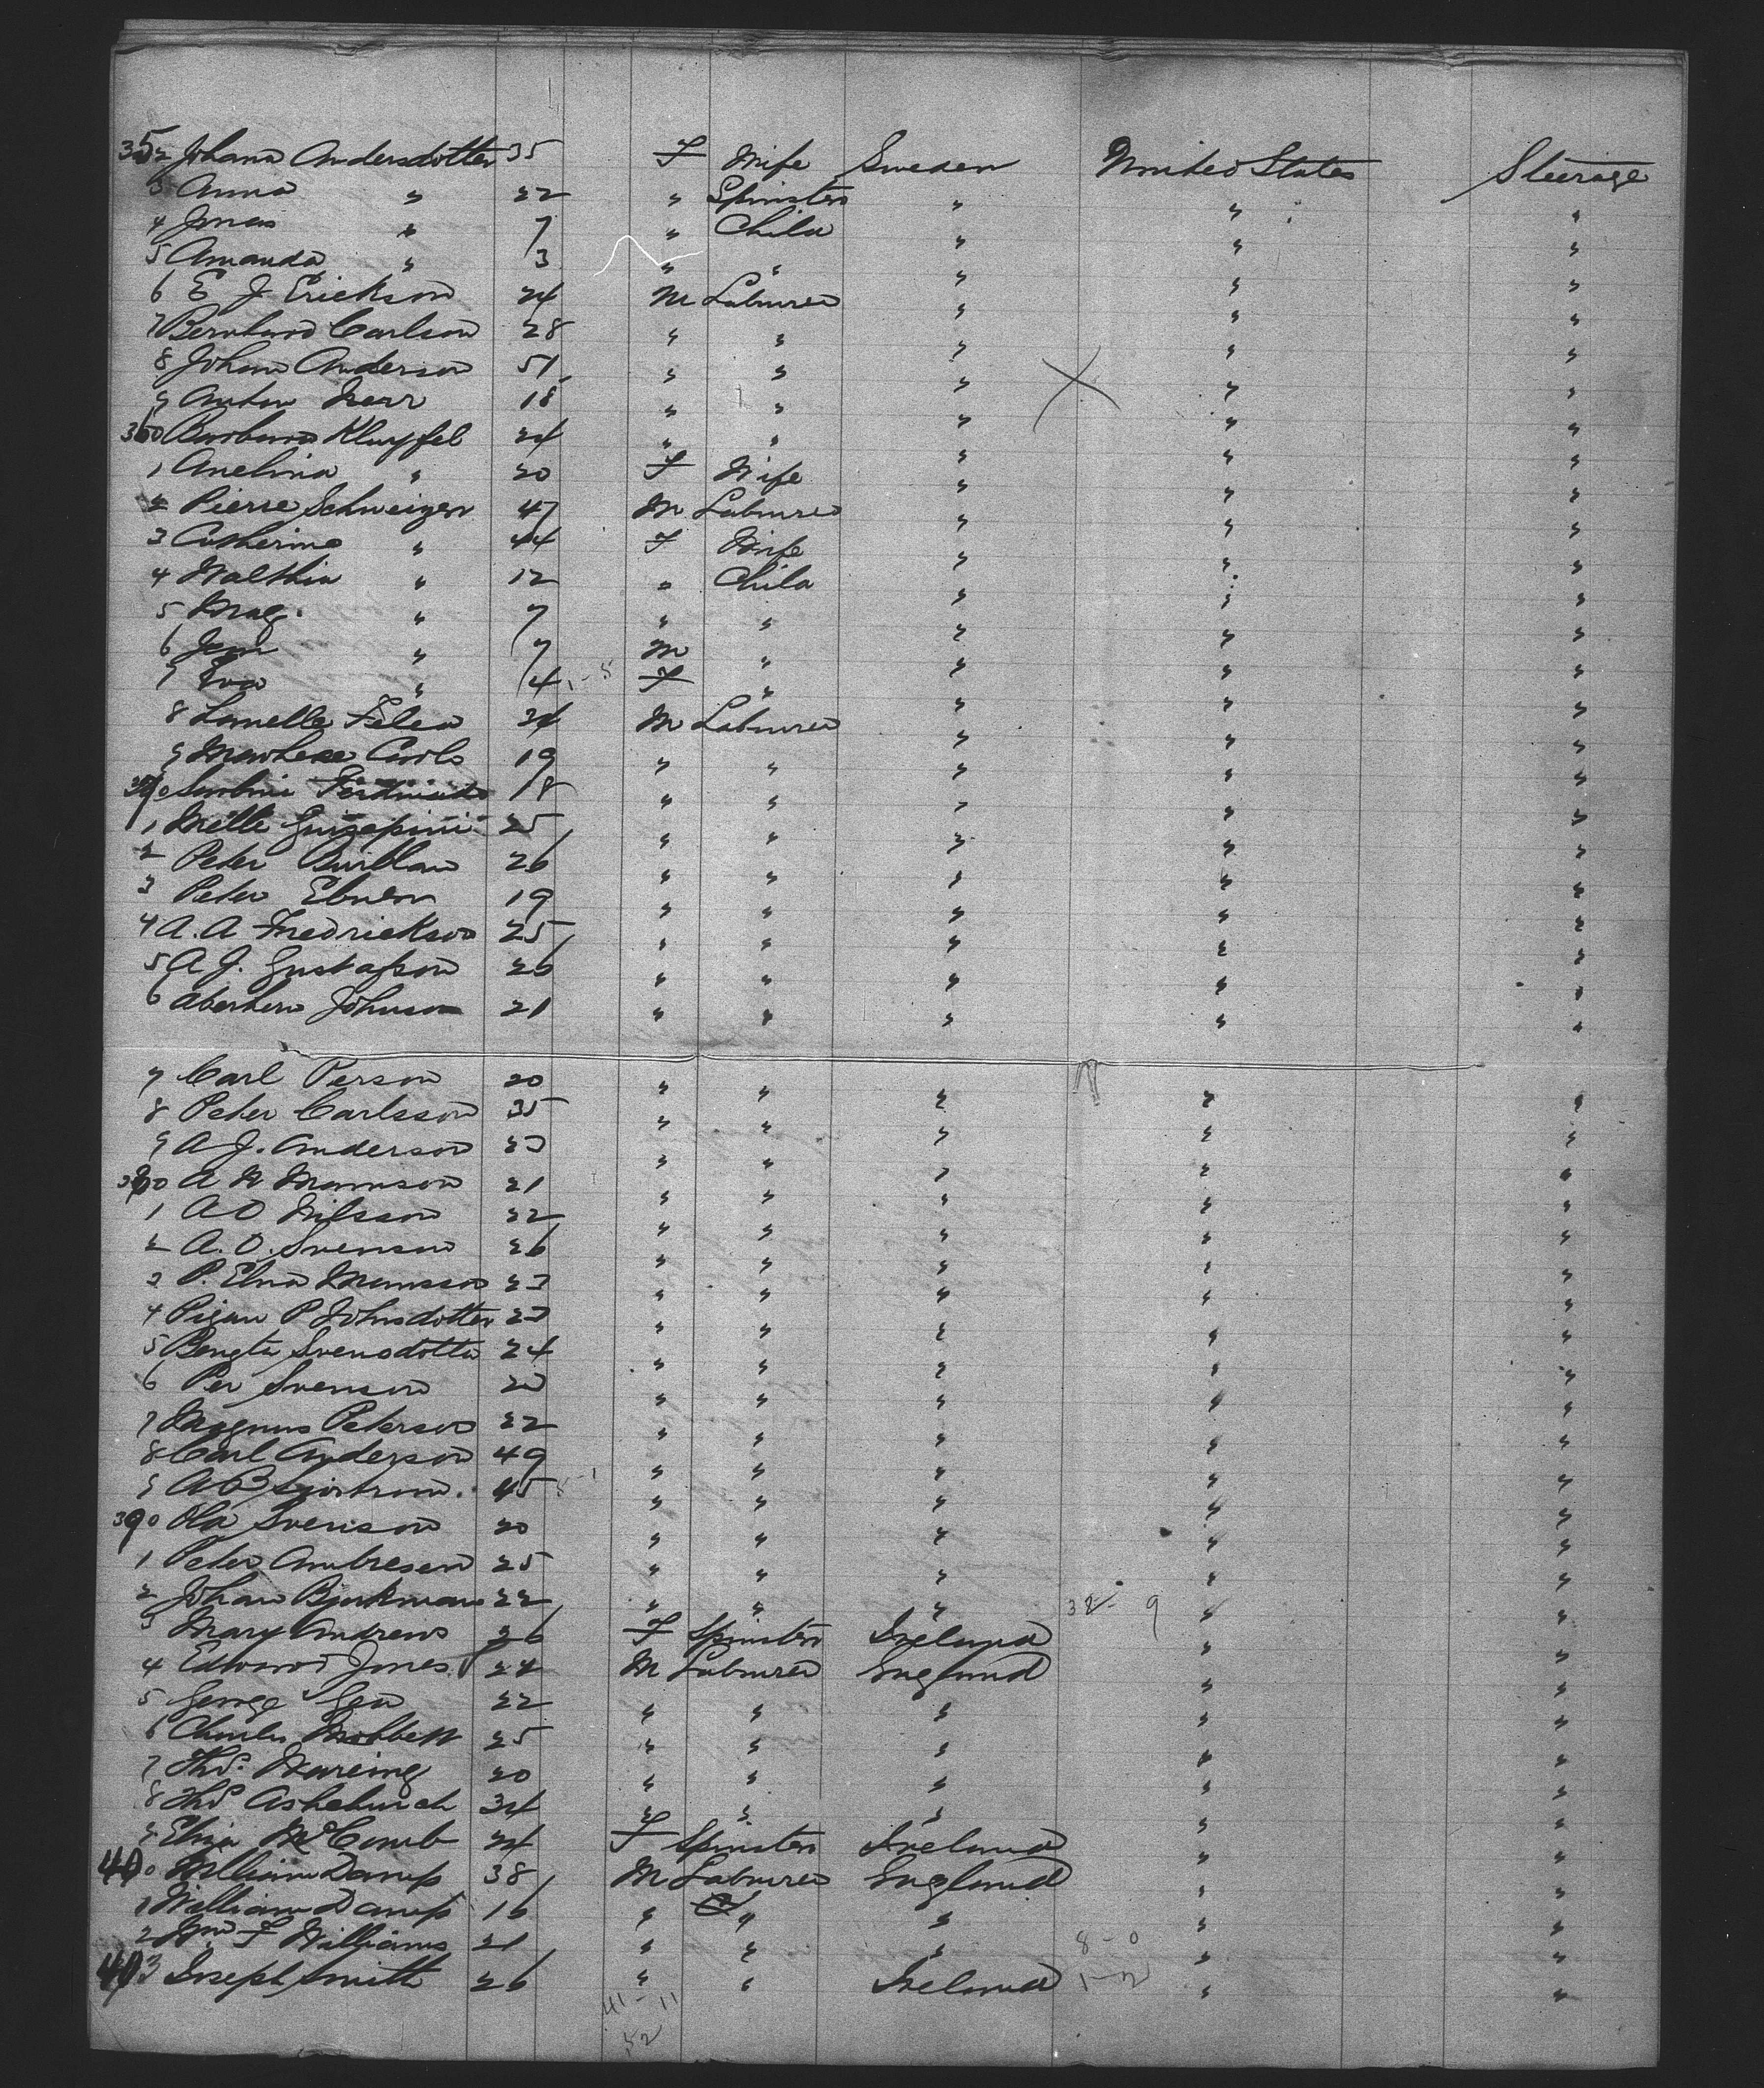 352 Johana Andersdotter 35 F Wife Sweden United States Steerage
3 Anna " 22 " Spinster " " "
4 Jonas " 7 " Child " " "
5 Amanda " 3 " " " " "
6 E J Erickson 24 M Labourer " " "
7 Bernhard Carlson 28 " " " " "
8 Johan Anderson 51 " " " " "
9 Anton 18 " " " " "
360 Barbara Klupfel 24 " " " " "
1 Anelina " 20 F Wife " " "
2 Pierre Schweizer 47 M Labourer " " "
3 Catherine " 44 F Wife " " "
4 " 12 " Child " " "
5 Mag. " 7 " " " " "
6 " 7 M " " " "
7 Eva " 4 1-5 F " " " "
8 34 M Labourer " " "
9 Carlo 19 " " " " "
370 18 " " " " "
1 25 " " " " "
2 Peter 26 " " " " "
3 Peter Ebner 19 " " " " "
4 A. A Fredrickson 25 " " " " "
5 A J. Gustafson 26 " " " " "
6 Johnson 21 " " " " "
7 Carl Person 20 " " " " "
8 Peter Carlsson 35 " " " " "
9 A J. Anderson 23 " " " " "
380 A N Monsson 21 " " " " "
1 A O Nilsson 22 " " " " "
2 A. O. Svenson 26 " " " " "
3 P. Elna Monsson 23 " " " " "
4 P Johnsdotter 23 " " " " "
5 Bengta Svensdotter 24 " " " " "
6 Per Svenson 20 " " " " "
7 Magnus Peterson 22 " " " " "
8 Carl Anderson 49 " " " " "
9 A B Sjostrom. 45 5-1 " " " " "
390 Ola Svenson 20 " " " " "
1 Peter Ambresen 25 " " " " "
2 Johan Bjorkman 22 " " " 38-9 " "
3 Mary Andrews 26 F Spinster Ireland " "
4 Edward Jones 22 M Labourer England " "
5 George Gea 22 " " " " "
6 Charles Mobbett 25 " " " " "
7 Thos. Wareing 20 " " " " "
8 Thos Ashchurch 34 " " " " "
9 Eliza McComb 24 F Spinster Ireland " "
400 William Damp 38 M Labourer England " "
1 William Damp 16 " " " " "
2 Wm F Williams 21 " " " 8-0 " "
403 Joseph Smith 26 " " Ireland 1-2 " "
41-11
52